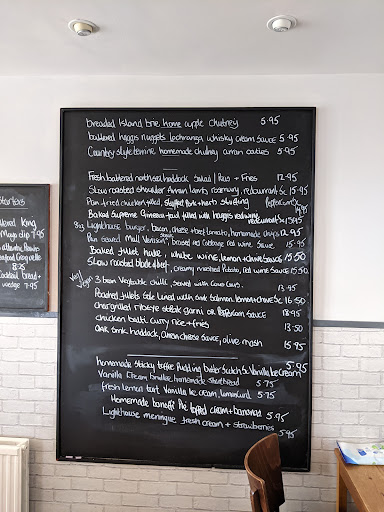 Starters
King
Mayo dip 7.95
8.95
bread +
wedge 7.95
breaded Island brie home apple chutney 5.95
battered haggis nuggets Lochranza whisky cream sauce 5.95
Country style terrine homemade chutney arran oaties 5.95
Fresh battered north sea haddock Salad / Peas + Fries 12.95
Slow roasted shoulder Arran lamb, rosemary, redcurrant Sc 15.95
Pan fried chicken fillet, + herb stuffing
Baked Supreme Guinea-fowl filled with haggis red wine redcurrant Sc 13.95
8oz Lighthouse burger, bacon, cheese, beef tomato, homemade chips 12.95
Pan seared Mull Venison Steak, braised red Cabbage red wine Sauce 15.95
Baked fillet hake, white wine, lemon + chive Sauce 15.50
Slow roasted blade of beef, Creamy mashed Potato, red wine Sauce 15.50
Veg/Vegan 3 bean Vegetable chilli, Served with Cous Cous. 13.95
Roasted fillets sole lined with oak Salmon lemon chive Sc 16.50
Chargrilled ribeye steak garni or Peppercorn Sauce 18.95
chicken balti curry rice + fries 13.50
Oak Smk haddock, Arran cheese Sauce, olive mash 15.95
homemade Sticky toffee Pudding butter Scotch Sc Vanilla Ice Cream 5.95
Vanilla Cream brulee homemade Shortbread 5.75
fresh lemon tart Vanilla Ice cream, lemon curd 5.75
Homemade banoffi Pie topped cream + bananas 5.95
Lighthouse meringue fresh cream + strawberries 5.95